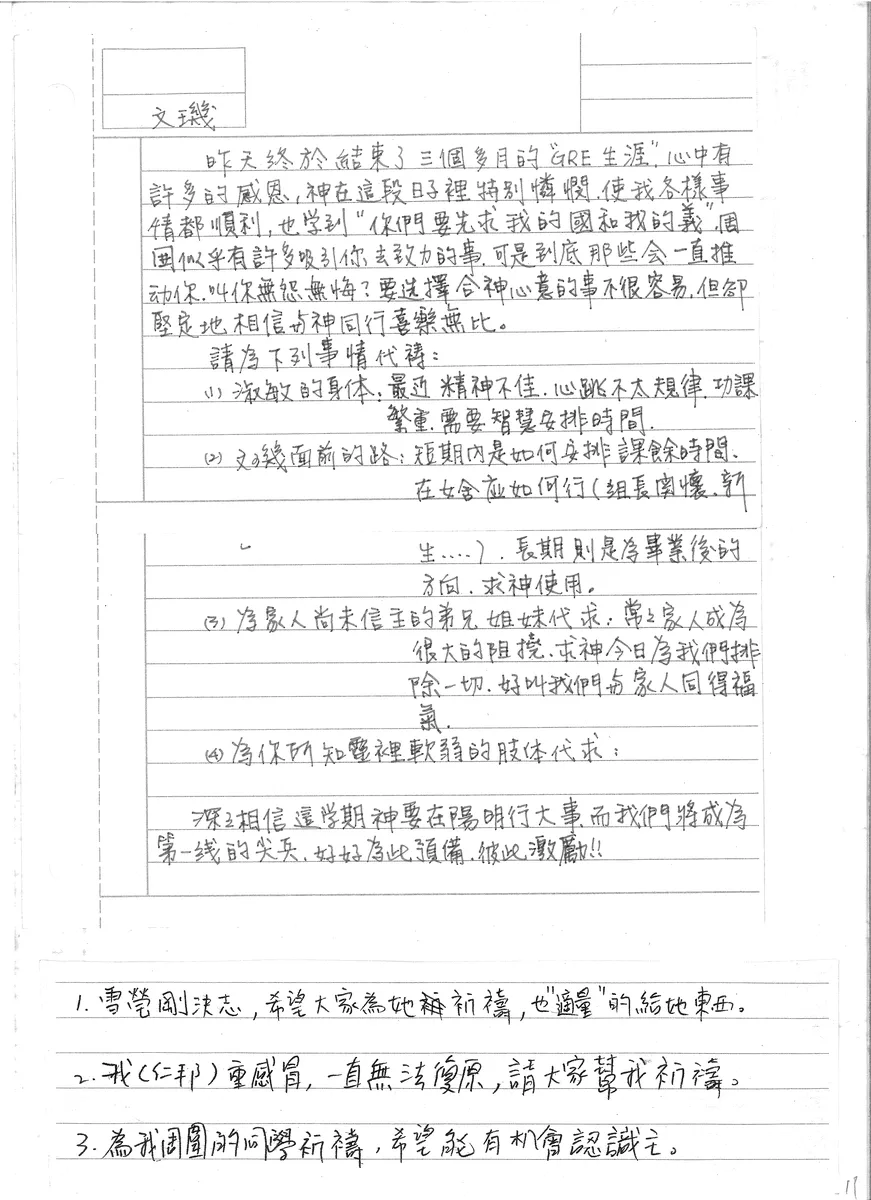 文璣
昨天終於結束了三個多月的"GRE生涯",心中有
許多的感恩,神在這段日子裡特別憐憫.使我各樣事
情都順利,也学到"你們要先求我的國和我的義".周
圍似乎有許多吸引你去致力的事.可是到底那些会一直推
动你.叫你無怨無悔?要选擇合神心意的事不很容易,但卻
堅定地相信与神同行喜樂無比。
請為下列事情代禱:
(1) 淑敏的身体:最近精神不佳.心跳不太規律.功課
繁重.需要智慧安排時間.
(2) 文璣面前的路:短期內是如何安排課餘時間、
在女舍应如何行(組長関懷、新
生....).長期則是為畢業後的
方向.求神使用。
(3) 為家人尚未信主的弟兄姐妹代求:常々家人成為
很大的阻撓.求神今日為我們排
除一切.好叫我們与家人同得福
氣.
(4) 為你所知靈裡軟弱的肢体代求:
深々相信這学期神要在陽明行大事.而我們將成為
第一线的尖兵.好好為此預備.彼此激勵!!
1. 雪瑩剛決志,希望大家為她祈禱,也"適量"的給她東西。
2. 我(仁邦)重感冒,一直無法復原,請大家幫我祈禱。
3. 為我周圍的同學祈禱,希望能有机會認識主。
11